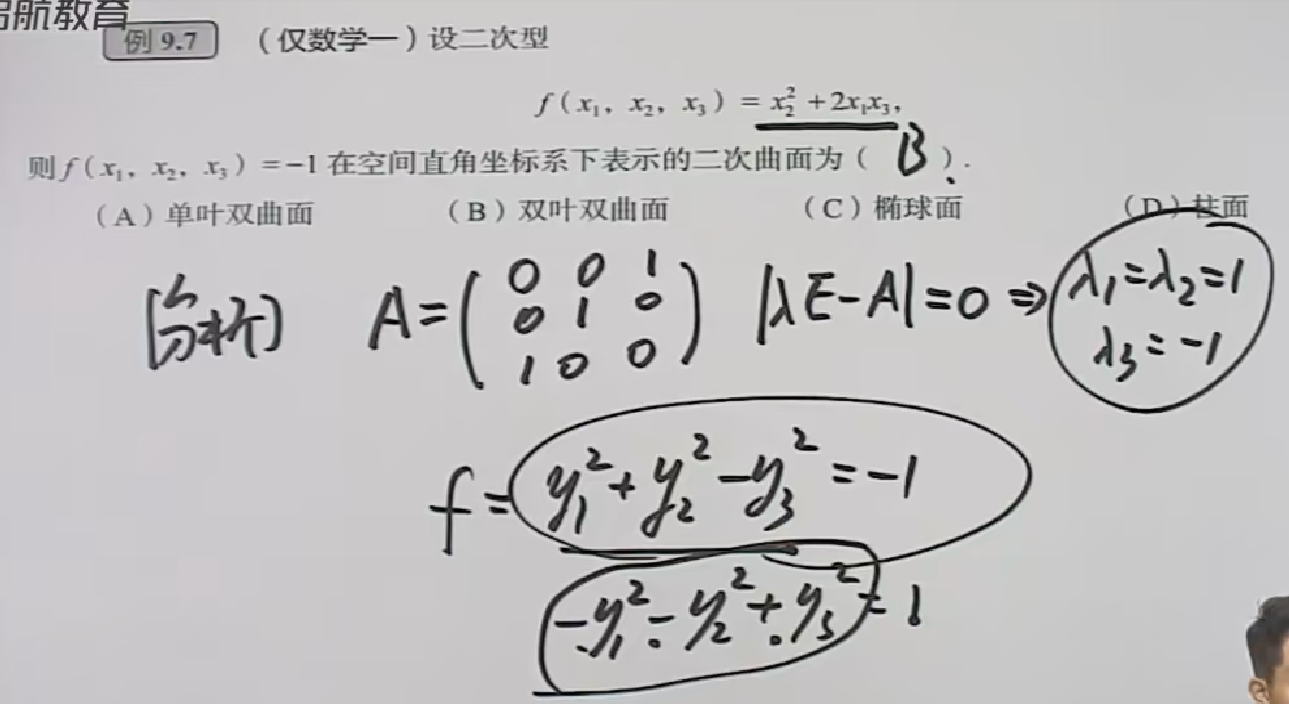 启航教育
例 9.7 （仅数学一）设二次型
f(x₁, x₂, x₃) = x₂² + 2x₁x₃,
则 f(x₁, x₂, x₃) = -1 在空间直角坐标系下表示的二次曲面为（ B ）.
（A）单叶双曲面 （B）双叶双曲面 （C）椭球面 （D）柱面
[分析] A = ( 0 0 1 |λE-A|=0 ⇒ λ₁=λ₂=1
0 1 0 λ₃=-1
1 0 0 )
f = y₁² + y₂² - y₃² = -1
-y₁² - y₂² + y₃² = 1